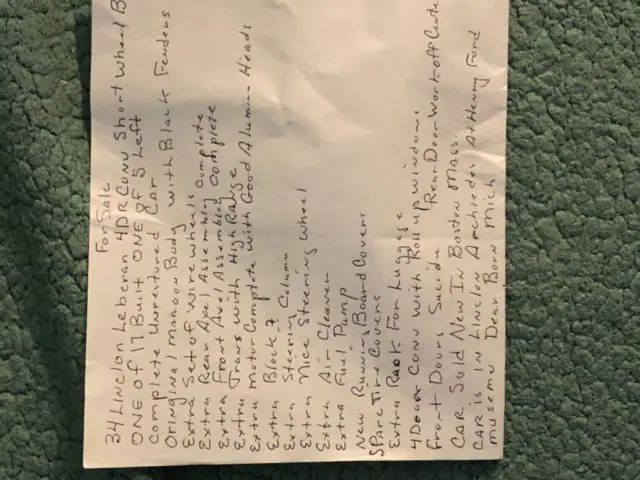 For Sale
34 Linclon Leberan 4DR Conv Short Wheel B
ONE of 17 Built ONE of 5 Left
Complete Unrestored Car
Oringinal Maroon Body with Black Fenders
Extra Set of Wire wheels
Extra Rear Axel Assembly Complete
Extra Front Axel Assembley Complete
Extra Trans with High Range
Extra Motor Complete with Good Alumium Heads
Extra Block?
Extra Steering Column
Extra Nice Steering Wheel
Extra Air Cleaner
Extra Fuel Pump
New Running Board Covers
SPare Tire Covers
Extra Rack For Luggage
4Door Conv with Roll up windows
Front Doors Sucide Rear Door Work off Cente
CAR Sold New In Boston Mass.
CAR is IN Linclon Archieder At Henry Ford
musemu Dear Born Mich